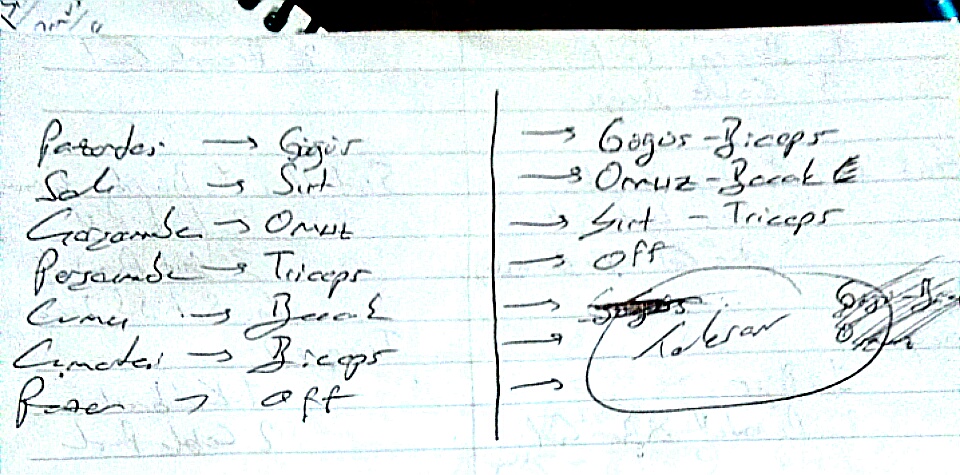 Pazartesi → Göğüs
Salı → Sırt
Çarşamba → Omuz
Perşembe → Triceps
Cuma → Bacak
Cumartesi → Biceps
Pazar → Off
→ Göğüs - Biceps
→ Omuz - Bacak
→ Sırt - Triceps
→ Off
→
→ Tekrar
→